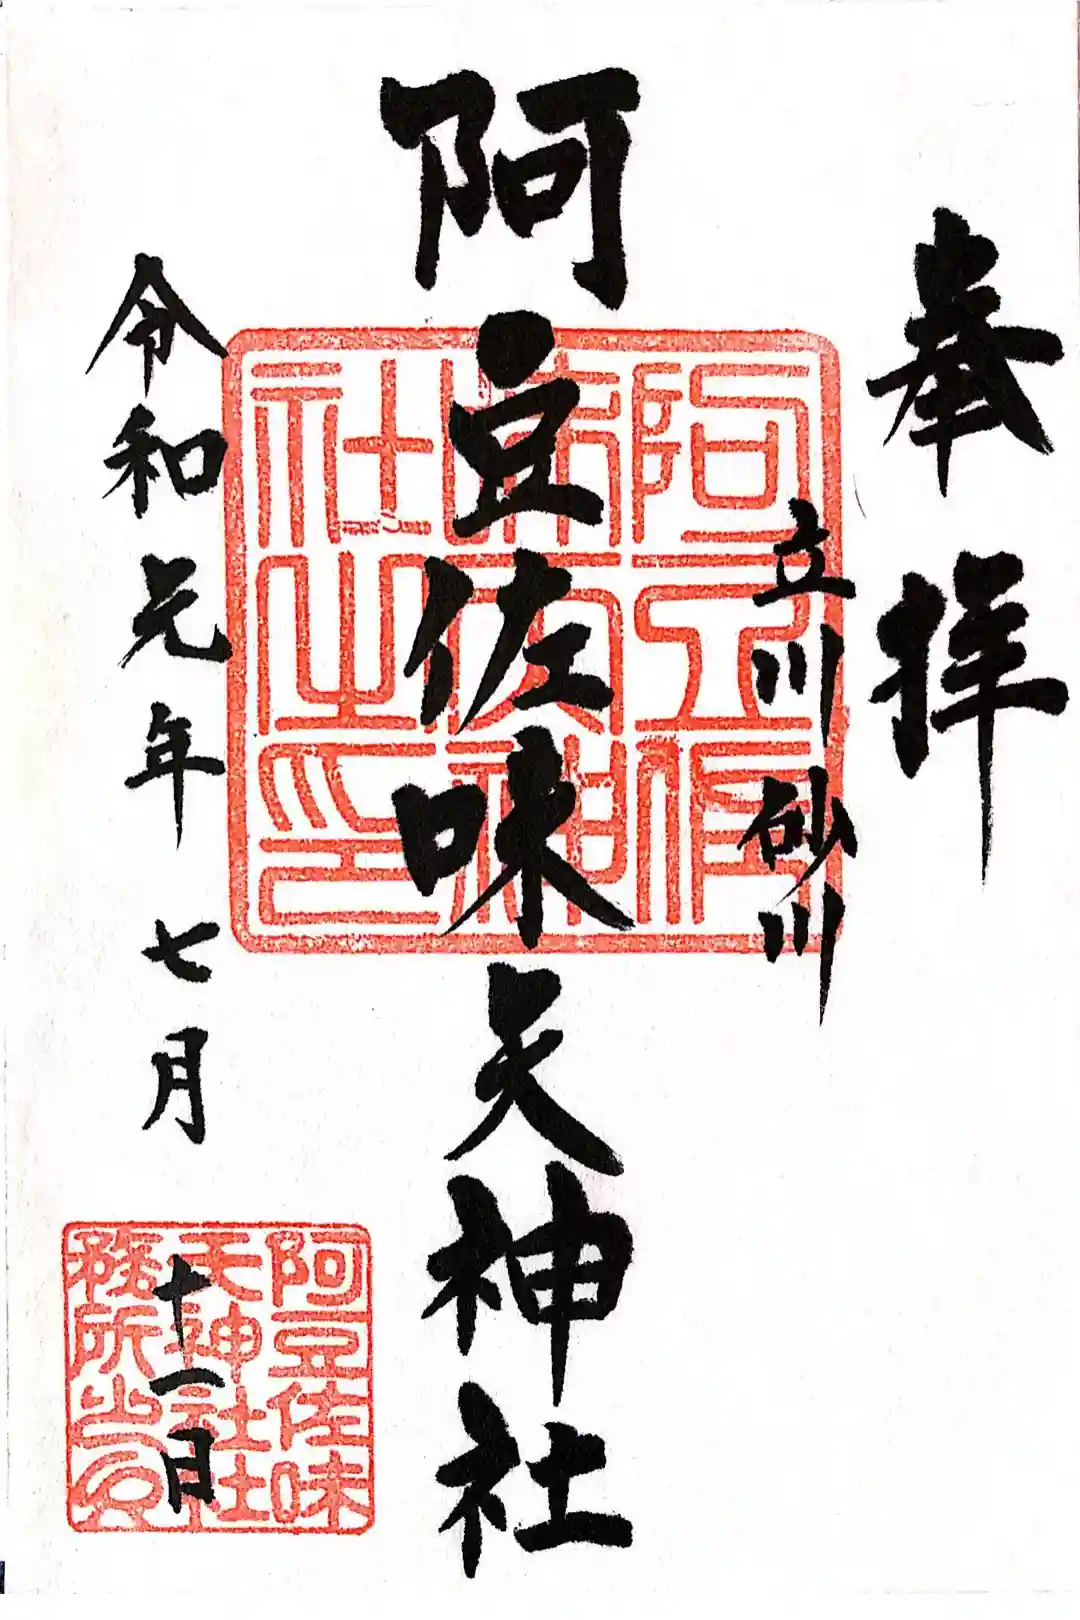 奉拝
立川砂川
阿豆佐味天神社
令和元年七月十一日
阿豆佐
味天神
社之印
阿豆佐味
天神社社
務所之印